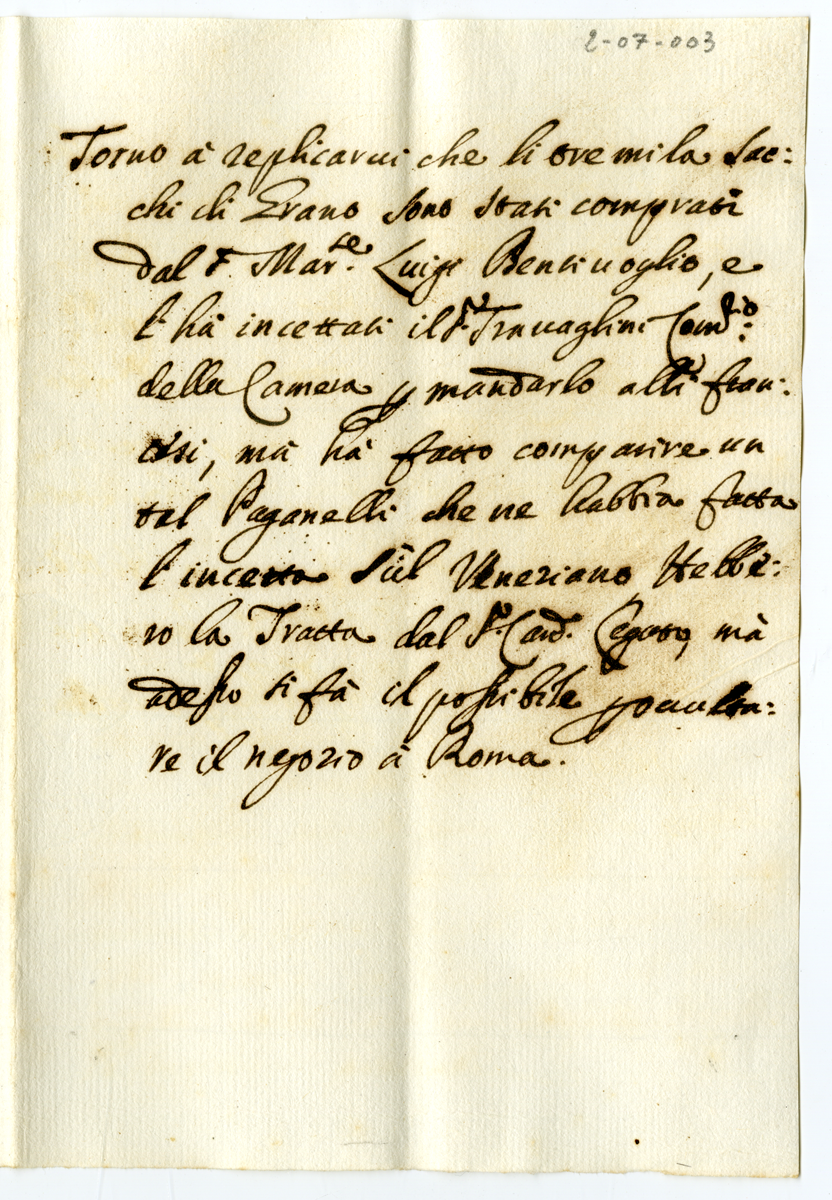 2-07-003
Torno à replicarui che li tre mila Sac:
chi di Grano sono stati comprati
dal S. Mar.se Luigi Bentiuoglio, e
l'hà incettati il S.r Trauaglini Com.rio
della Camera p mandarlo alli fran:
cesi, mà hà fatto comparire un
tal Paganelli che ne habbia fatta
l'incetta sùl Veneziano, Hebbe:
ro la Tratta dal S.r Card. Legato, mà
adesso si fà il possibile p occulta:
re il negozio à Roma.